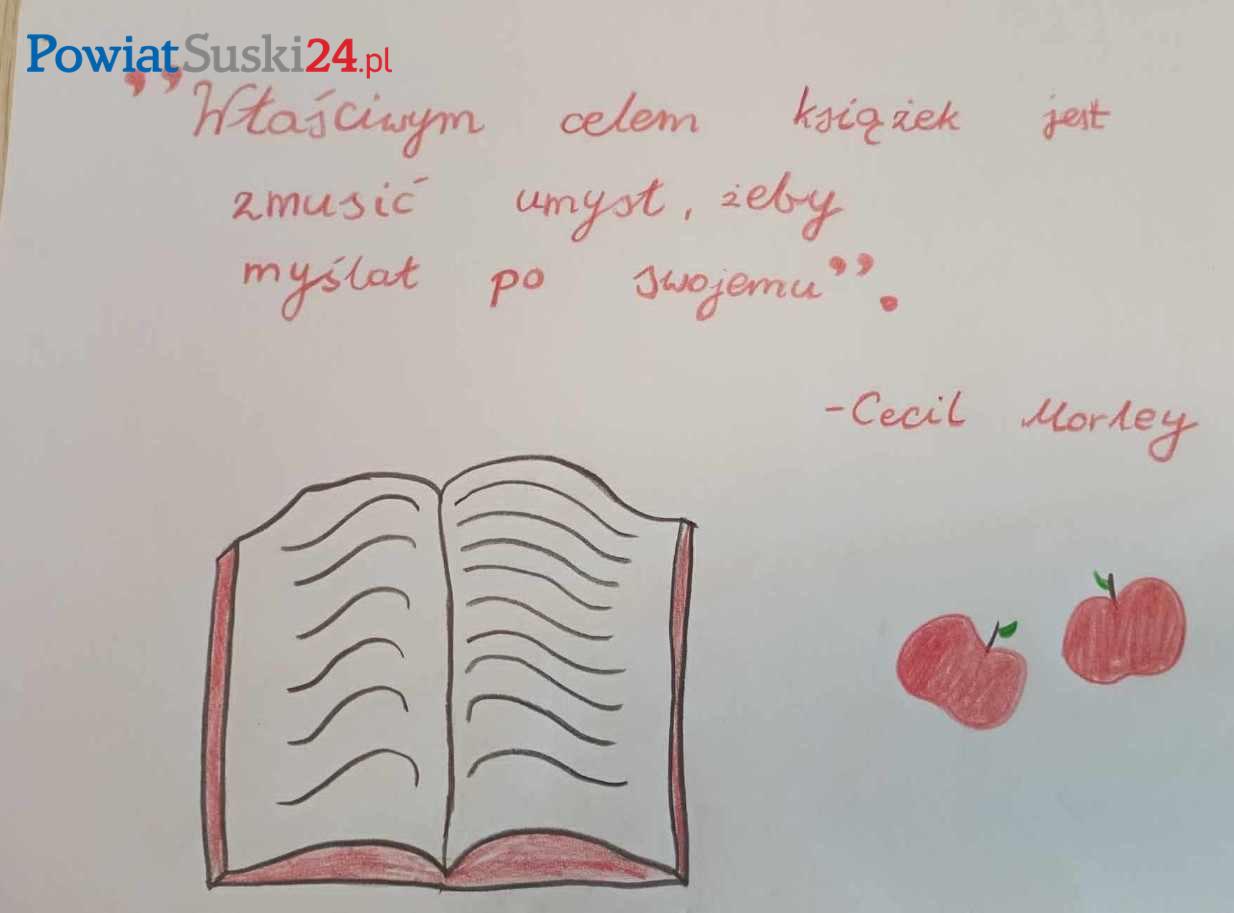 PowiatSuski24.pl
,,Właściwym celem książek jest
zmusić umysł, żeby
myślał po swojemu”.
-Cecil Morley